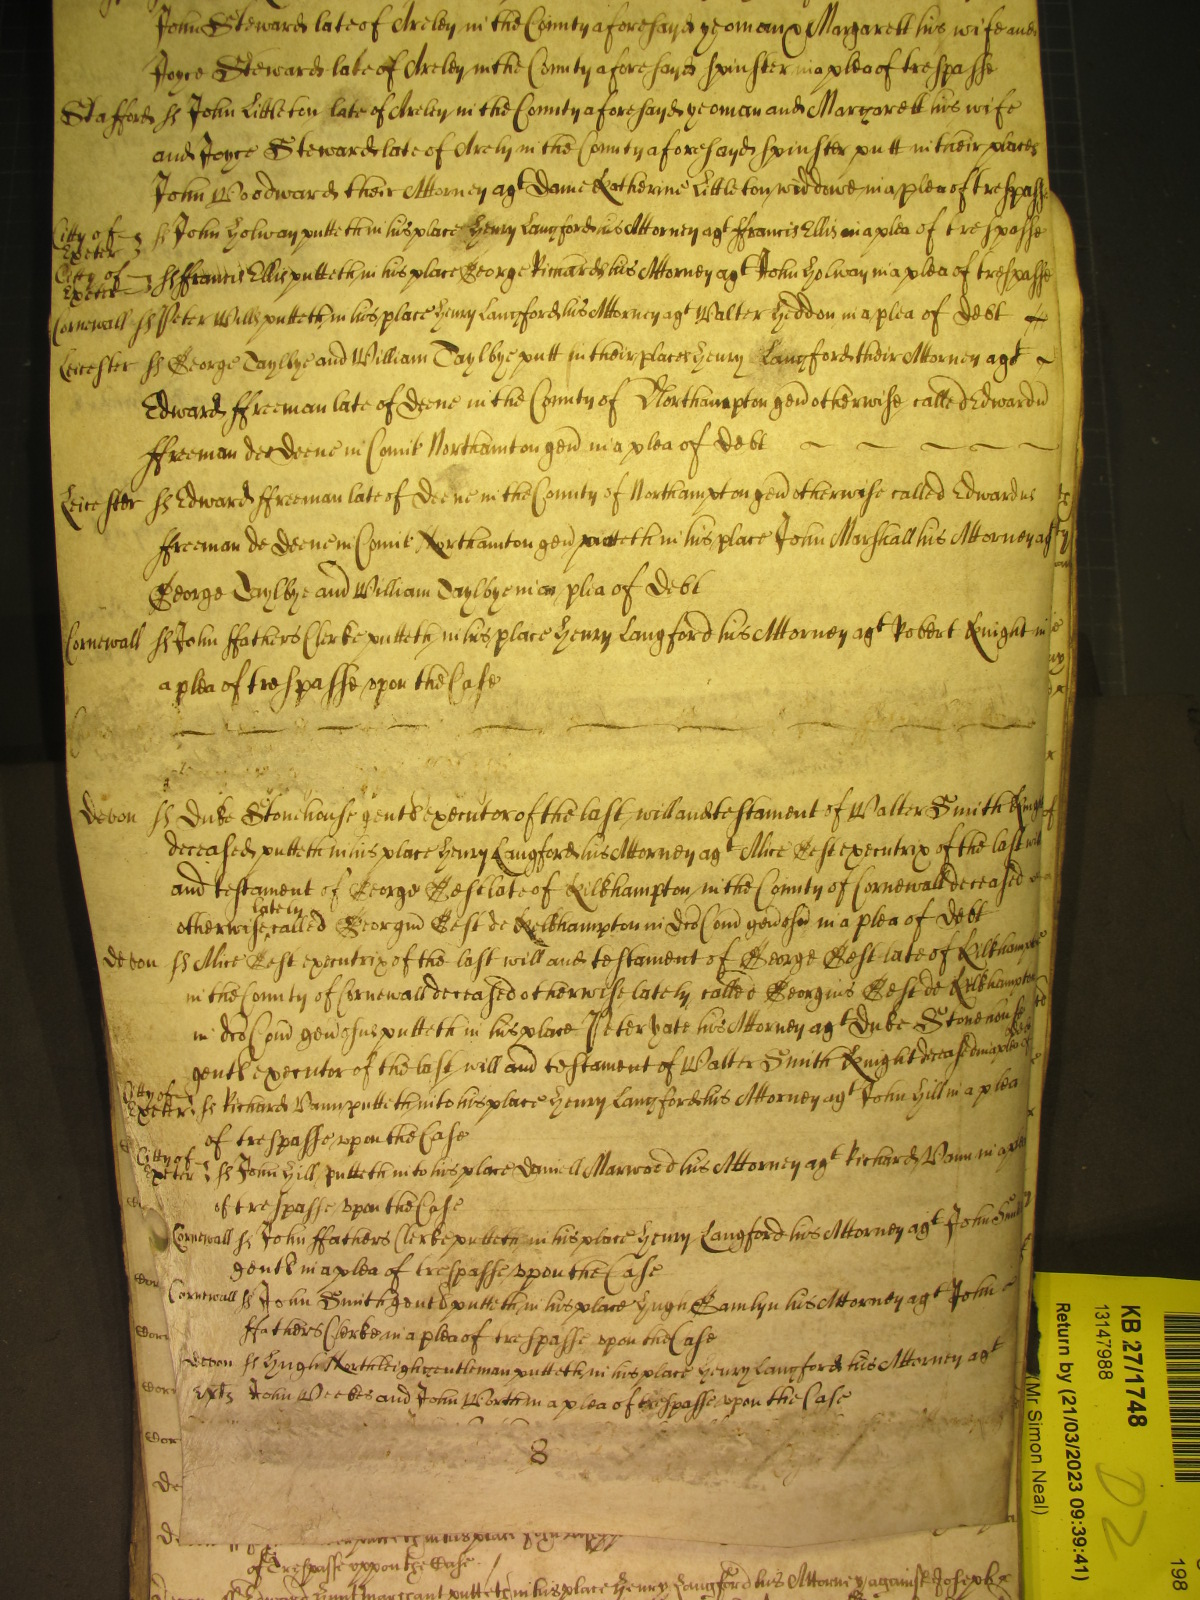 John Steward late of Areley in the County aforesayd yeoman & Margarett his wife and
Joyce Steward late of Areley in the County aforesayd spinster in a plea of trespasse
Stafford ss John Littleton late of Areley in the County aforesayd yeoman and Margarett his wife
and Joyce Steward late of Arely in the County aforesayd spinster putt in their places
John Woodward their Attorney agt Dame Katherine Littleton widdowe in a plea of trespasse
Citty of Exeter ss John Holway putteth in his place Henry Langford his Attorney agt Francis Ellis in a plea of trespasse
Citty of Exeter ss ffrancis Ellis putteth in his place George Rickards his Attorney agt John Holway in a plea of trespasse
Cornewall ss Peter Wills putteth in his place Henry Langford his Attorney agt Walter Heddon in a plea of debt
Leicester ss George Taylbye and William Taylbye putt in their places Henry Langford their Attorney agt
Edward ffreeman late of Deene in the County of Northampton gen otherwise called Edwardu
ffreeman de Deene in Comit Northamton gen in a plea of debt
Leicester ss Edward ffreeman late of Deene in the County of Northampton gen otherwise called Edwardus
ffreeman de Deene in Comit Northamton gen putteth in his place John Marshall his Attorney agt
George Taylbye and William Taylbye in a plea of debt
Cornewall ss John ffathers Clerke putteth in his place Henry Langford his Attorney agt Robert Knight in
a plea of trespasse upon the Case
Devon ss Duke Stonehouse gent executor of the last will and testament of Walter Smith Knight
deceased putteth in his place Henry Langford his Attorney agt Alice Gest executrix of the last will
and testament of George Gest late of Kilkhampton in the County of Cornewall deceased
otherwise lately called Georgiu Gest de Kilkhampton in dco Com generosu in a plea of debt
Devon ss Alice Gest executrix of the last will and testament of George Gest late of Kilkhampton
in the County of Cornewall deceased otherwise lately called Georgius Gest de Kilkhampton
in dco Com generosus putteth in his place Peter Yate his Attorney agt Duke Stonehouse
gent executor of the last will and testament of Walter Smith Knight deceased in a plea of debt
Citty of Exeter ss Richard Vann putteth into his place Henry Langford his Attorney agt John Hill in a plea
of trespasse upon the Case
Citty of Exeter ss John Hill putteth into his place Daniell Marwood his Attorney agt Richard Vann in a plea
of trespasse upon the Case
Cornewall ss John ffathers Clerke putteth in his place Henry Langford his Attorney agt John Smith
gent in a plea of trespasse upon the Case
Cornewall ss John Smith gent putteth in his place Hugh Gamlyn his Attorney agt John
ffathers Clerke in a plea of trespasse upon the Case
Devon ss Hugh Northleigh gentleman putteth in his place Henry Langford his Attorney agt
John Weekes and John Worth in a plea of trespasse upon the Case
8
of Trespasse uppon the Case
putteth in his place Henry Langford his Attorney against Joseph
KB 27/1748
13147988
Return by (21/03/2023 09:39:41)
(Mr Simon Neal)
D2
198